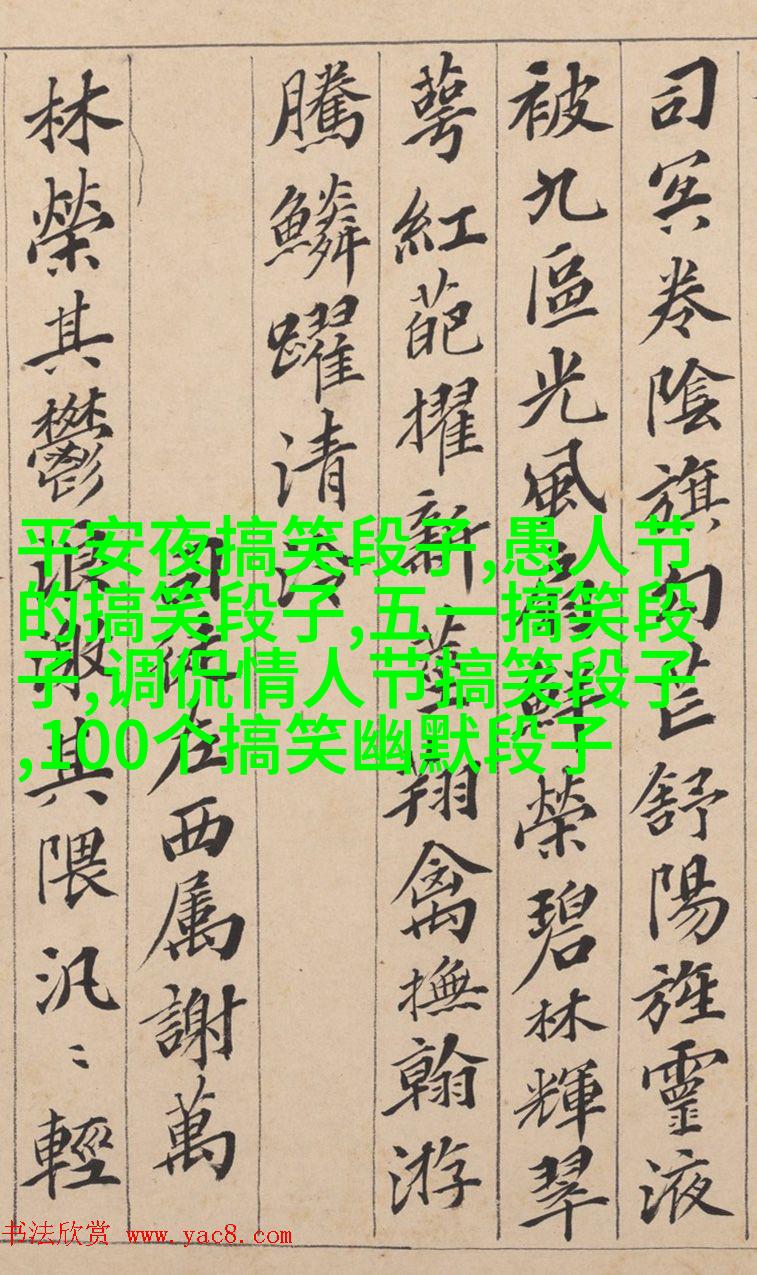 司冥卷陰旗句芒舒陽旌靈液
被九區光風扇鮮榮碧林輝翠
萼紅葩擢新莖翔禽撫翰游
騰鱗躍清泠
司徒左西属謝萬
林榮其鬱浪激其隈汎〻輕
平安夜搞笑段子,愚人节
的搞笑段子,五一搞笑段
子,调侃情人节搞笑段子
,100个搞笑幽默段子
书法欣赏 www.yac8.com